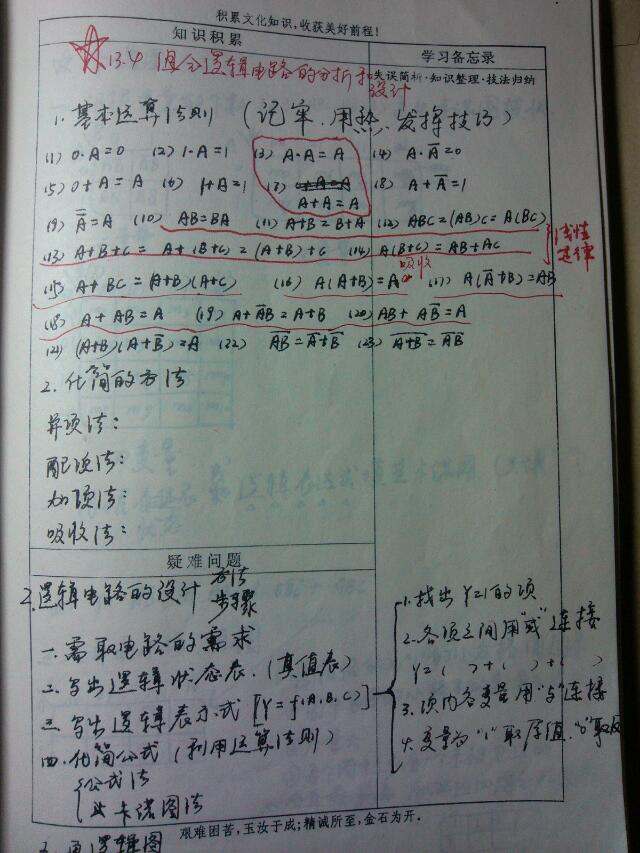 积累文化知识,收获美好前程!
知识积累
学习备忘录
失误简析·知识整理·技法归纳
13.4 组合逻辑电路的分析和设计
1. 基本运算法则 (记牢、用熟、发挥技巧)
(1) 0·A=0 (2) 1·A=1 (3) A·A=A (4) A·A̅=0
(5) 0+A=A (6) 1+A=1 (7) A+A=A (8) A+A̅=1
(9) A̿=A (10) AB=BA (11) A+B=B+A (12) ABC=(AB)C=A(BC)
(13) A+B+C=A+(B+C)=(A+B)+C (14) A(B+C)=AB+AC
定律
吸收
(15) A+BC=(A+B)(A+C) (16) A(A+B)=A (17) A(A̅+B)=AB
(18) A+AB=A (19) A+A̅B=A+B (20) AB+AB̅=A
(21) (A+B)(A+B̅)=A (22) A̅B̅=A̅+B̅ (23) A̅+̅B̅=A̅B̅
2. 化简的方法
并项法:
配项法:
加项法:
吸收法:
疑难问题
2. 逻辑电路的设计 方法 步骤
一. 需取电路的需求
二. 写出逻辑状态表.(真值表)
三. 写出逻辑表示式 [Y=f(A.B.C)]
四. 化简公式 (利用运算法则)
公式法
卡诺图法
1. 找出Y=1的项
2. 各项之间用"或"连接
Y=( )+( )+( )
3. 项内各变量用"与"连接
4. 变量为"1"取原值."0"取反
艰难困苦,玉汝于成;精诚所至,金石为开.
逻辑图